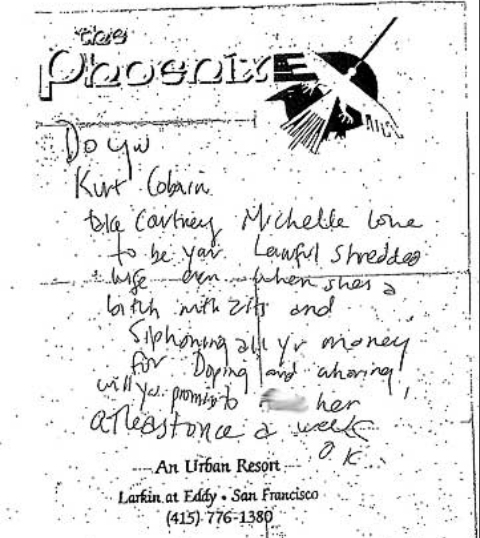 the
Phoenix
Do you
Kurt Cobain
take Cortney Michelle Love
to be your Lawful shredded
wife even when shes a
bitch with zits and
siphoning all yr money
for Doping and whoring
will you promise to her
atleast once a week
OK
An Urban Resort
Larkin at Eddy • San Francisco
(415) 776-1380